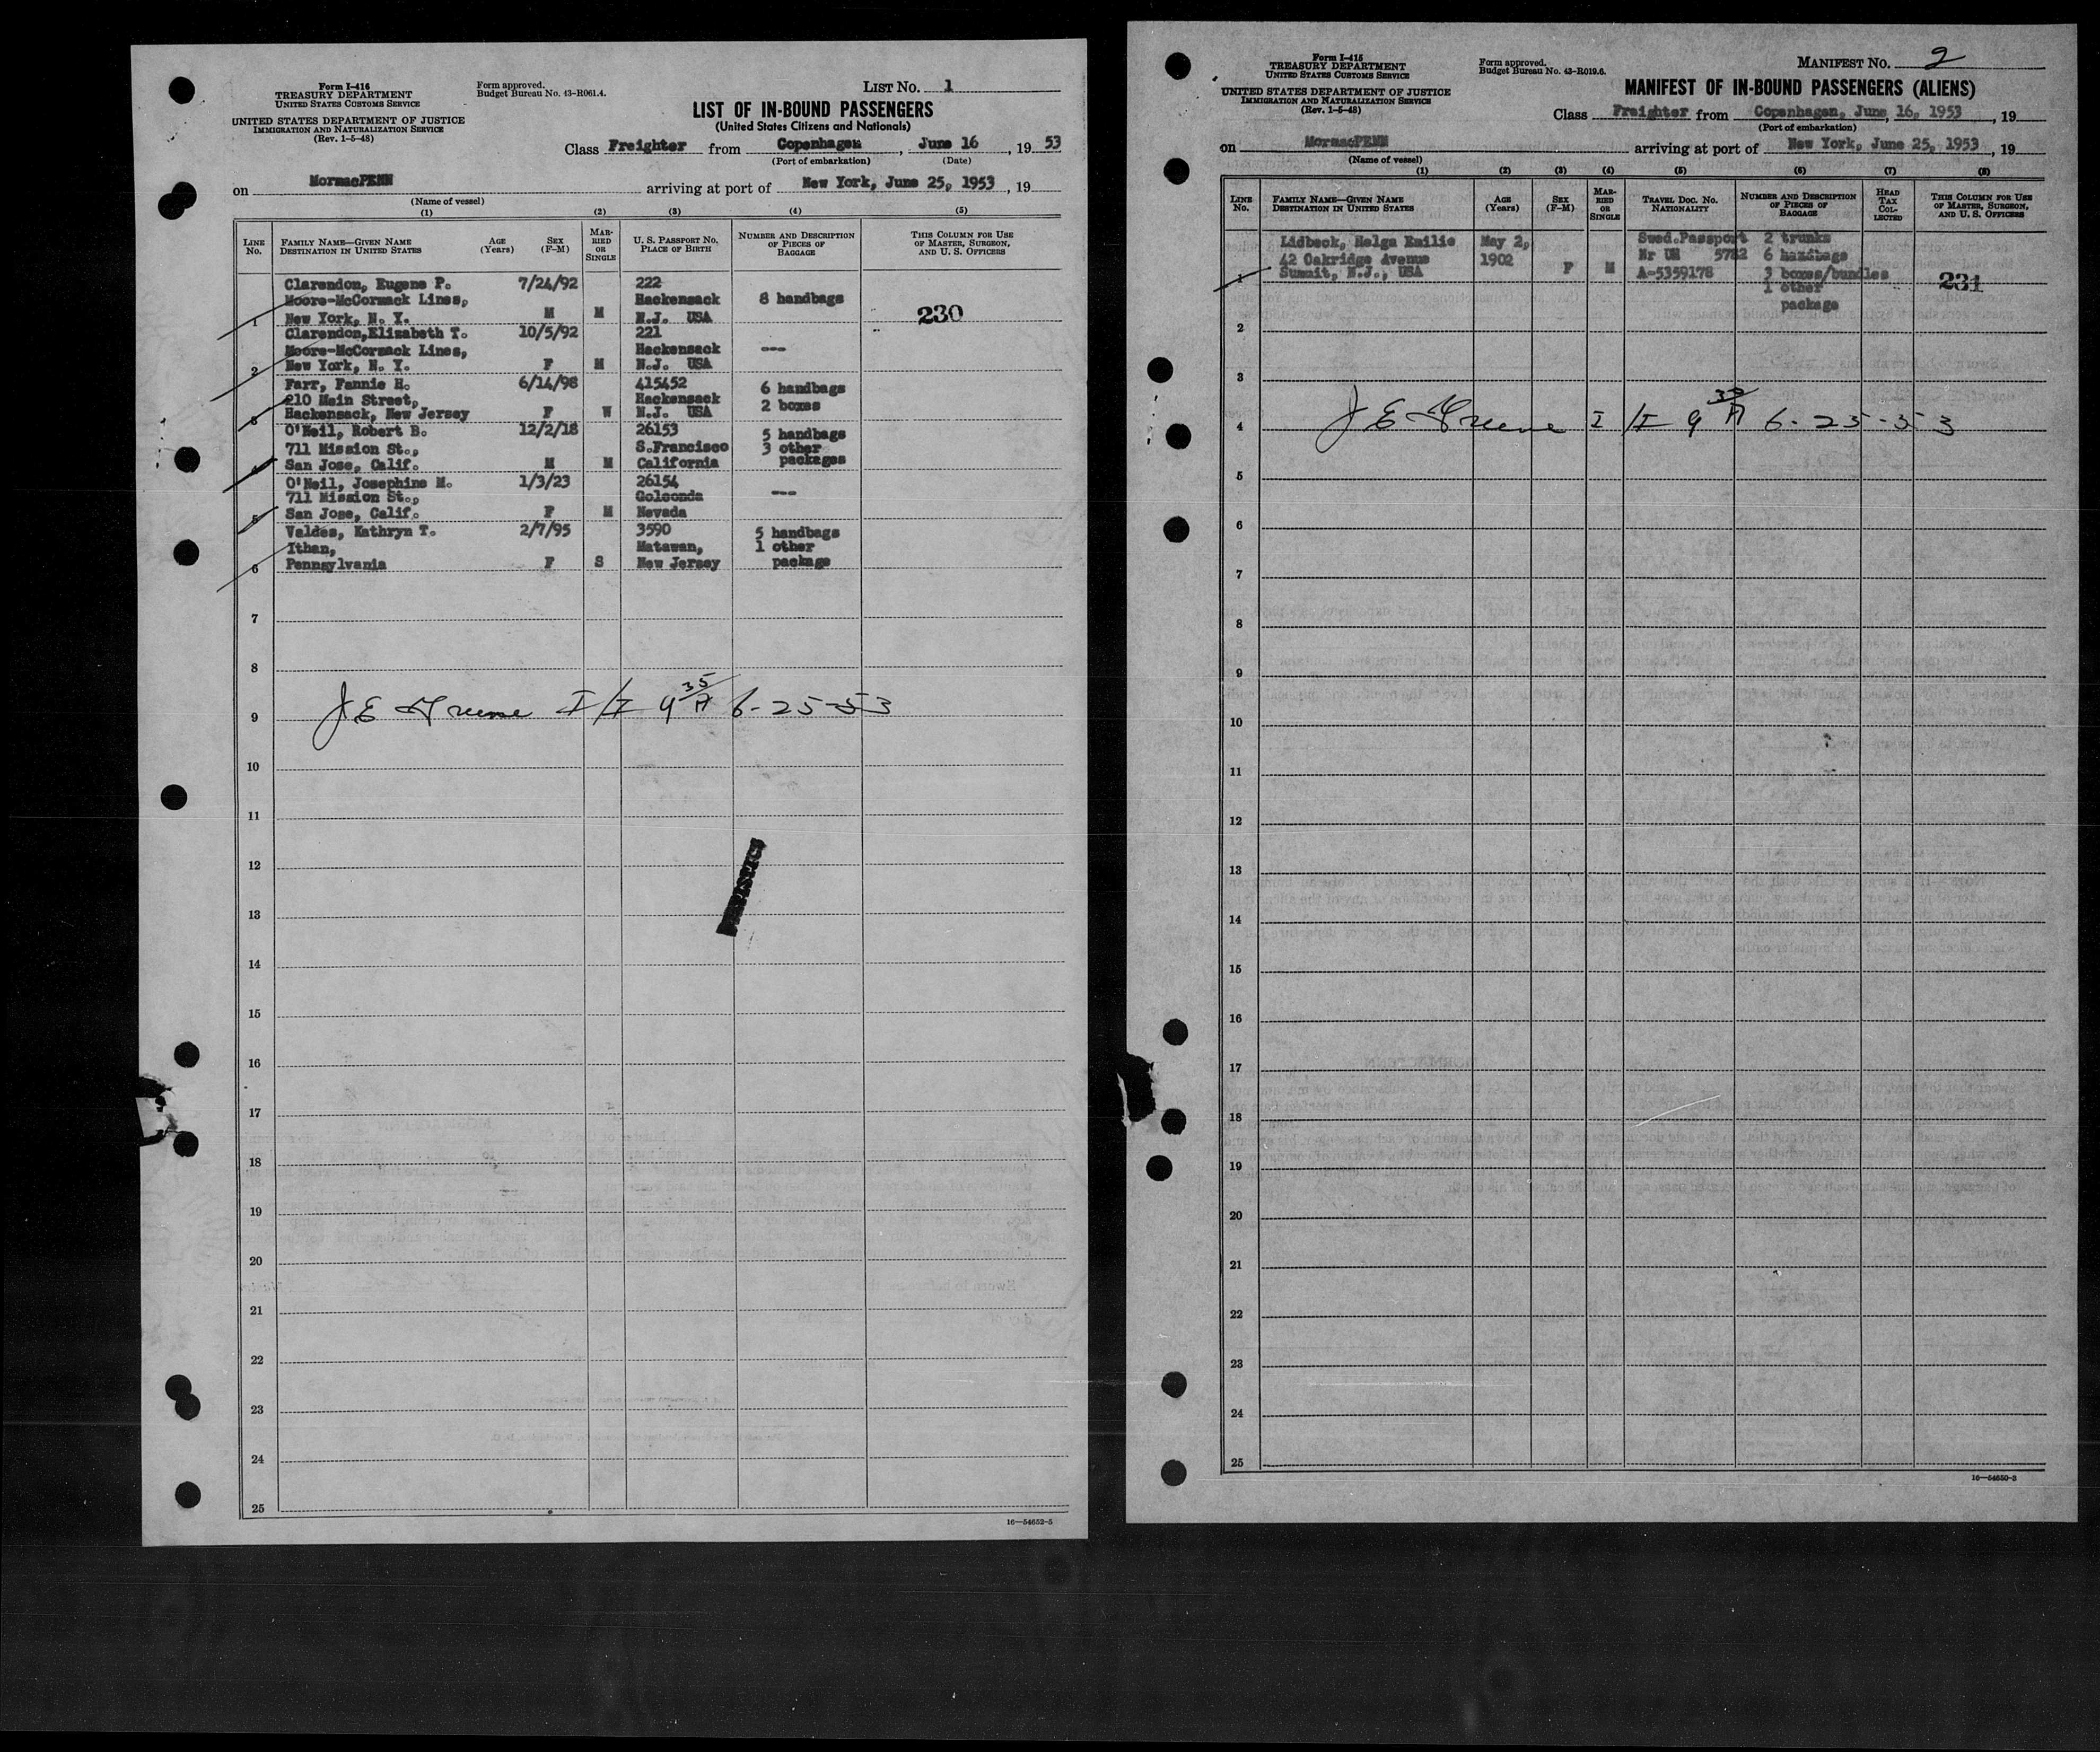 Form I-416
TREASURY DEPARTMENT
UNITED STATES CUSTOMS SERVICE
UNITED STATES DEPARTMENT OF JUSTICE
IMMIGRATION AND NATURALIZATION SERVICE
(Rev. 1-5-48)
Form approved.
Budget Bureau No. 43-R061.4.
LIST NO. 1
LIST OF IN-BOUND PASSENGERS
(United States Citizens and Nationals)
Class Freighter from Copenhagen, June 16, 19 53
(Port of embarkation) (Date)
on MormacPENN arriving at port of New York, June 25, 1953, 19
(Name of vessel)
(1) (2) (3) (4) (5)
LINE NO.
FAMILY NAME—GIVEN NAME
DESTINATION IN UNITED STATES
AGE (Years)
SEX (F-M)
MARRIED OR SINGLE
U. S. PASSPORT NO.
PLACE OF BIRTH
NUMBER AND DESCRIPTION OF PIECES OF BAGGAGE
THIS COLUMN FOR USE OF MASTER, SURGEON, AND U. S. OFFICERS
Clarendon, Eugene P. 7/24/92 222
Moore-McCormack Lines, Hackensack 8 handbags
1 New York, N. Y. M M N.J. USA 230
Clarendon, Elizabeth T. 10/5/92 221
Moore-McCormack Lines, Hackensack ---
2 New York, N. Y. F M N.J. USA
Farr, Fannie H. 6/14/98 415452 6 handbags
210 Main Street, Hackensack 2 boxes
3 Hackensack, New Jersey F W N.J. USA
O'Neil, Robert B. 12/2/18 26153 5 handbags
711 Mission St., S.Francisco 3 other
4 San Jose, Calif. M M California packages
O'Neil, Josephine M. 1/3/23 26154
711 Mission St., Golconda ---
5 San Jose, Calif. F M Nevada
Valdes, Kathryn T. 2/7/95 3590 5 handbags
Ithan, Matawan, 1 other
6 Pennsylvania F S New Jersey package
7
8
9 J E Greene I/I 9 35 A 6-25-53
10
11
12
13
14
15
16
17
18
19
20
21
22
23
24
25
16—54652-5
Form I-415
TREASURY DEPARTMENT
UNITED STATES CUSTOMS SERVICE
UNITED STATES DEPARTMENT OF JUSTICE
IMMIGRATION AND NATURALIZATION SERVICE
(Rev. 1-5-48)
Form approved.
Budget Bureau No. 43-R019.6.
MANIFEST NO. 2
MANIFEST OF IN-BOUND PASSENGERS (ALIENS)
Class Freighter from Copenhagen, June 16, 1953, 19
(Port of embarkation)
on MormacPENN arriving at port of New York, June 25, 1953, 19
(Name of vessel)
(1) (2) (3) (4) (5) (6) (7) (8)
LINE NO.
FAMILY NAME—GIVEN NAME
DESTINATION IN UNITED STATES
AGE (Years)
SEX (F-M)
MARRIED OR SINGLE
TRAVEL DOC. NO.
NATIONALITY
NUMBER AND DESCRIPTION OF PIECES OF BAGGAGE
HEAD TAX COLLECTED
THIS COLUMN FOR USE OF MASTER, SURGEON, AND U. S. OFFICERS
Lidbeck, Helga Emilie May 2, Swed.Passport 2 trunks
42 Oakridge Avenue 1902 Nr UM 5782 6 handbags
1 Summit, N.J., USA F M A-5359178 3 boxes/bundles 231
1 other
package
2
3
4 J E Greene I/I 9 35 A 6-25-53
5
6
7
8
9
10
11
12
13
14
15
16
17
18
19
20
21
22
23
24
25
16—54650-3